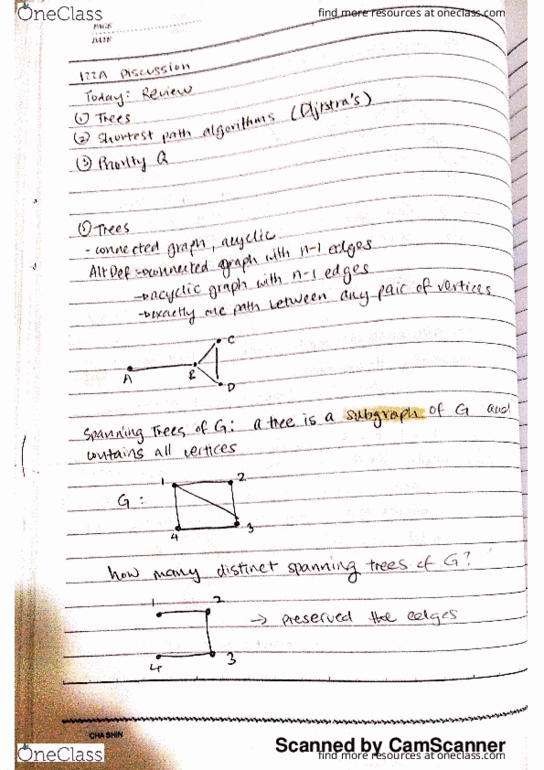 OneClass
find more resources at oneclass.com
PAGE
DATE
122A Discussion
Today: Review
① Trees
② Shortest path algorithms (Djistra's)
③ Priority Q
① Trees
- connected graph, acyclic
Alt Def → connected graph with n-1 edges
→ acyclic graph with n-1 edges
→ exactly one path between any pair of vertices
C
A
B
D
Spanning Trees of G: a tree is a subgraph of G and
contains all vertices
1
2
G:
4
3
how many distinct spanning trees of G?
1
2
→ preserved the edges
4
3
CHA SHIN
Scanned by CamScanner
OneClass
find more resources at oneclass.com